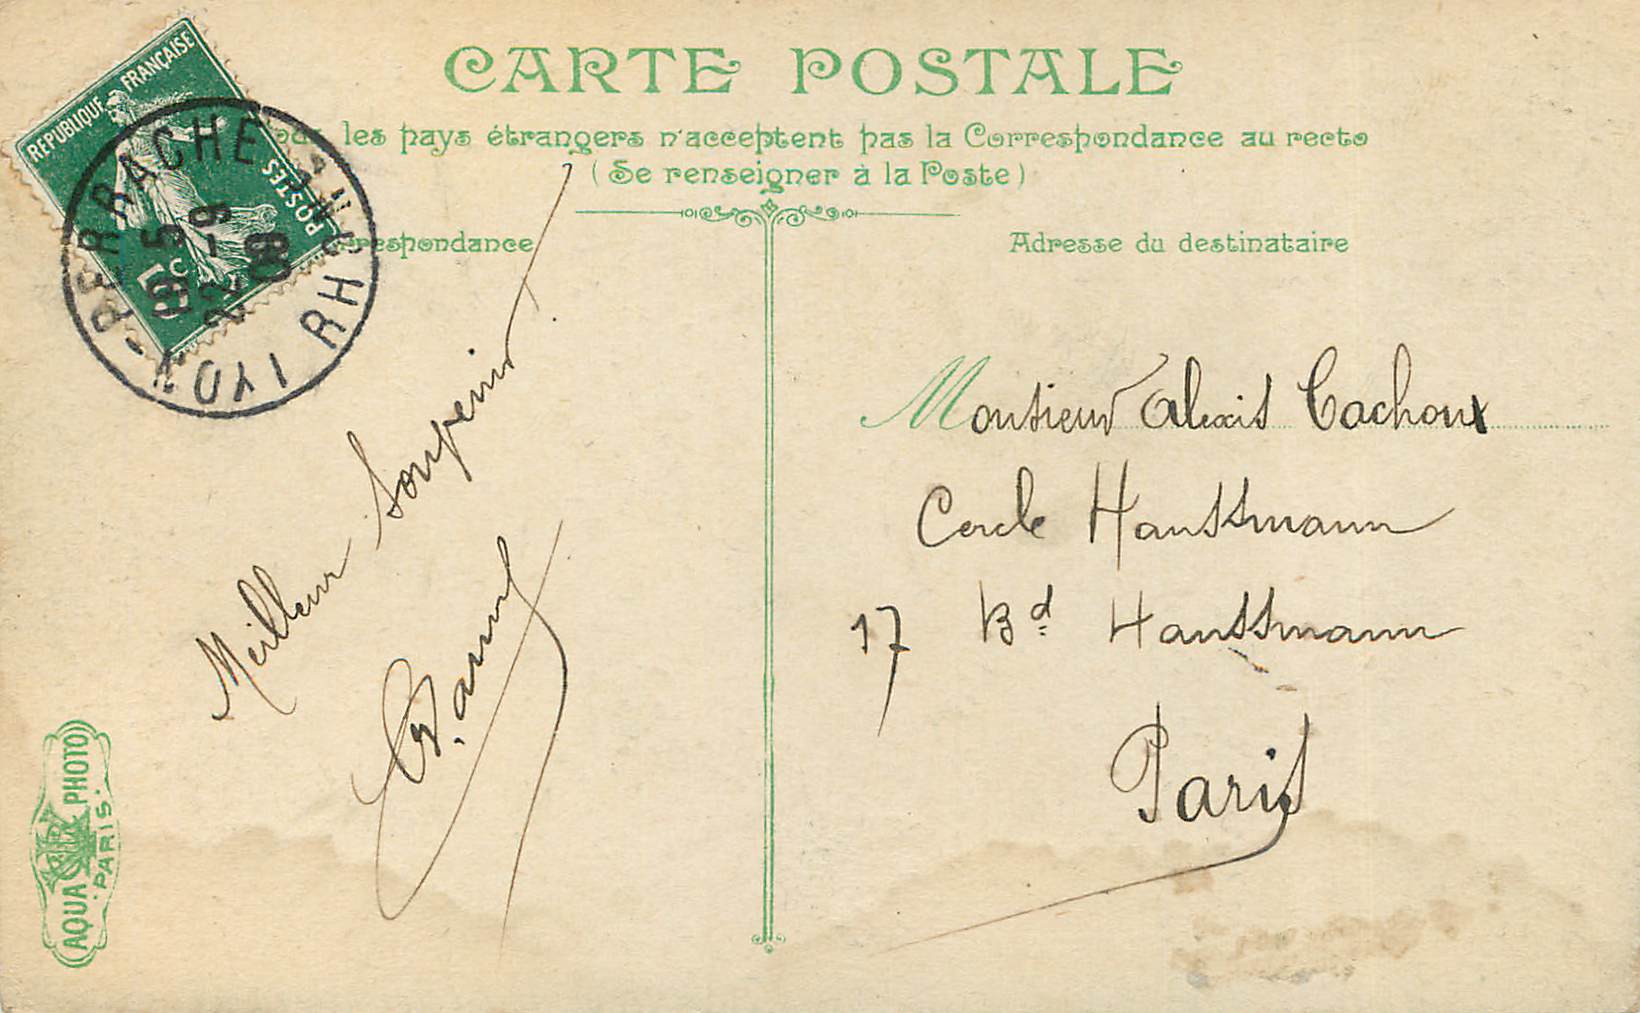 CARTE POSTALE
les pays étrangers n'acceptent pas la Correspondance au recto
(Se renseigner à la Poste)
Correspondance
Adresse du destinataire
REPUBLIQUE FRANÇAISE
POSTES
5c
LYON-PERRACHE RHONE
18 5
22-9
09
Meilleur Souvenir
Monsieur Alexis Cachoux
Cercle Haussmann
17 Bd Haussmann
Paris
AQUA PHOTO
PARIS